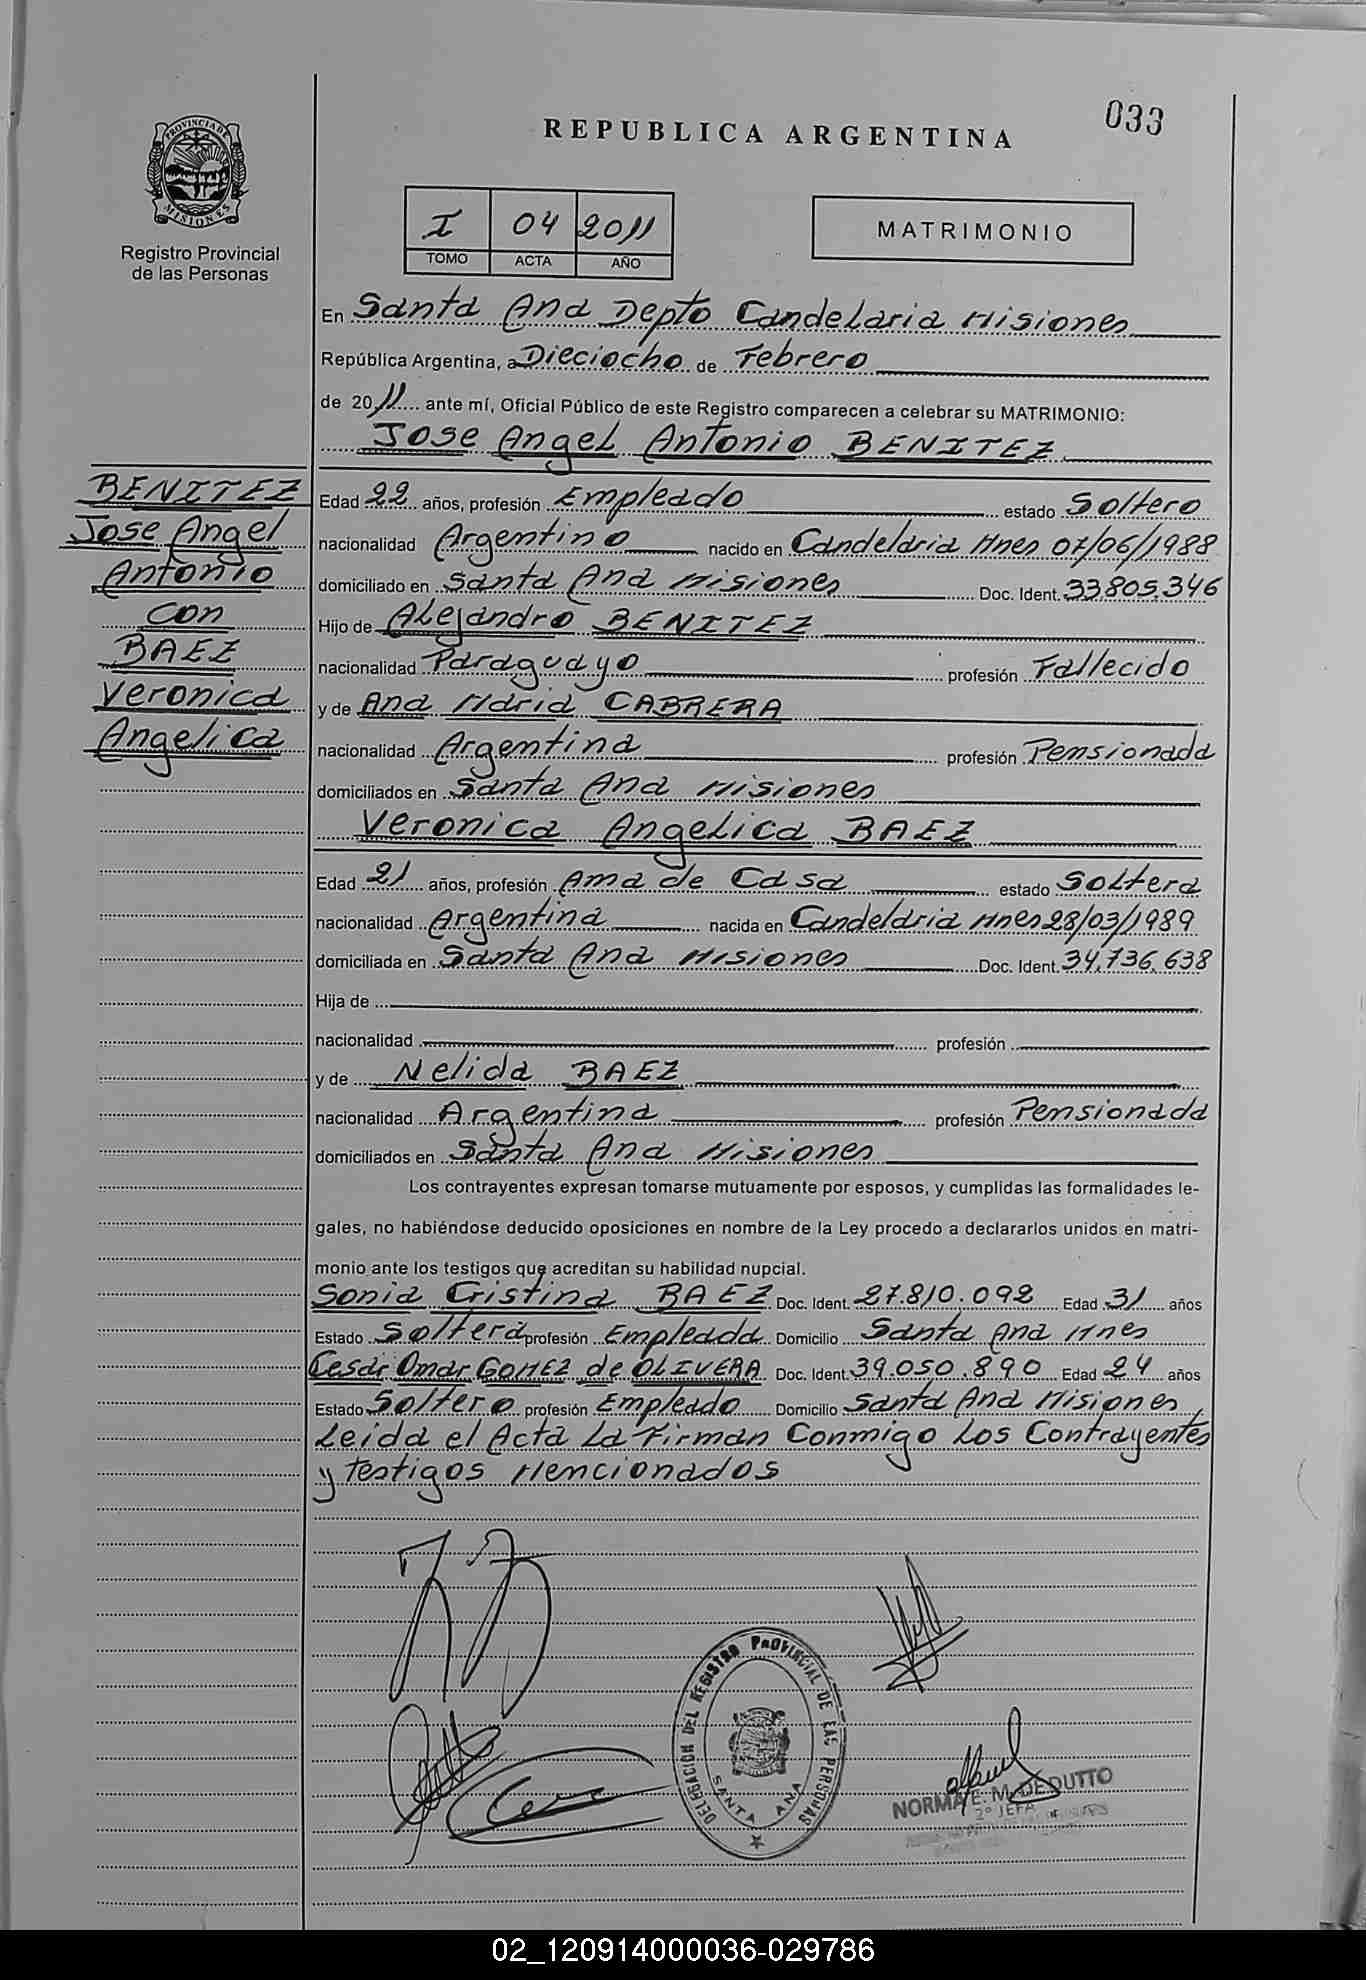 033
REPUBLICA ARGENTINA
PROVINCIA DE
MISIONES
Registro Provincial
de las Personas
I 04 2011
TOMO ACTA AÑO
MATRIMONIO
En Santa Ana Depto Candelaria Misiones
República Argentina, a Dieciocho de Febrero
de 2011 ante mí, Oficial Público de este Registro comparecen a celebrar su MATRIMONIO:
Jose Angel Antonio BENITEZ
BENITEZ
Jose Angel
Antonio
con
BAEZ
Veronica
Angelica
Edad 22 años, profesión Empleado estado Soltero
nacionalidad Argentino nacido en Candelaria Mnes 07/06/1988
domiciliado en Santa Ana Misiones Doc. Ident. 33.805.346
Hijo de Alejandro BENITEZ
nacionalidad Paraguayo profesión Fallecido
y de Ana Maria CABRERA
nacionalidad Argentina profesión Pensionada
domiciliados en Santa Ana Misiones
Veronica Angelica BAEZ
Edad 21 años, profesión Ama de Casa estado Soltera
nacionalidad Argentina nacida en Candelaria Mnes 28/03/1989
domiciliada en Santa Ana Misiones Doc. Ident. 34.736.638
Hija de
nacionalidad profesión
y de Nelida BAEZ
nacionalidad Argentina profesión Pensionada
domiciliados en Santa Ana Misiones
Los contrayentes expresan tomarse mutuamente por esposos, y cumplidas las formalidades le-
gales, no habiéndose deducido oposiciones en nombre de la Ley procedo a declararlos unidos en matri-
monio ante los testigos que acreditan su habilidad nupcial.
Sonia Cristina BAEZ Doc. Ident. 27.810.092 Edad 31 años
Estado Soltera profesión Empleada Domicilio Santa Ana Mnes
Cesar Omar GOMEZ de OLIVERA Doc. Ident. 39.050.890 Edad 24 años
Estado Soltero profesión Empleado Domicilio Santa Ana Misiones,
Leida el Acta La Firman Conmigo Los Contrayentes
y Testigos Mencionados
DELEGACION DEL REGISTRO PROVINCIAL DE LAS PERSONAS
SANTA ANA
NORMA E. M. DEDUTTO
2º JEFA
02_120914000036-029786